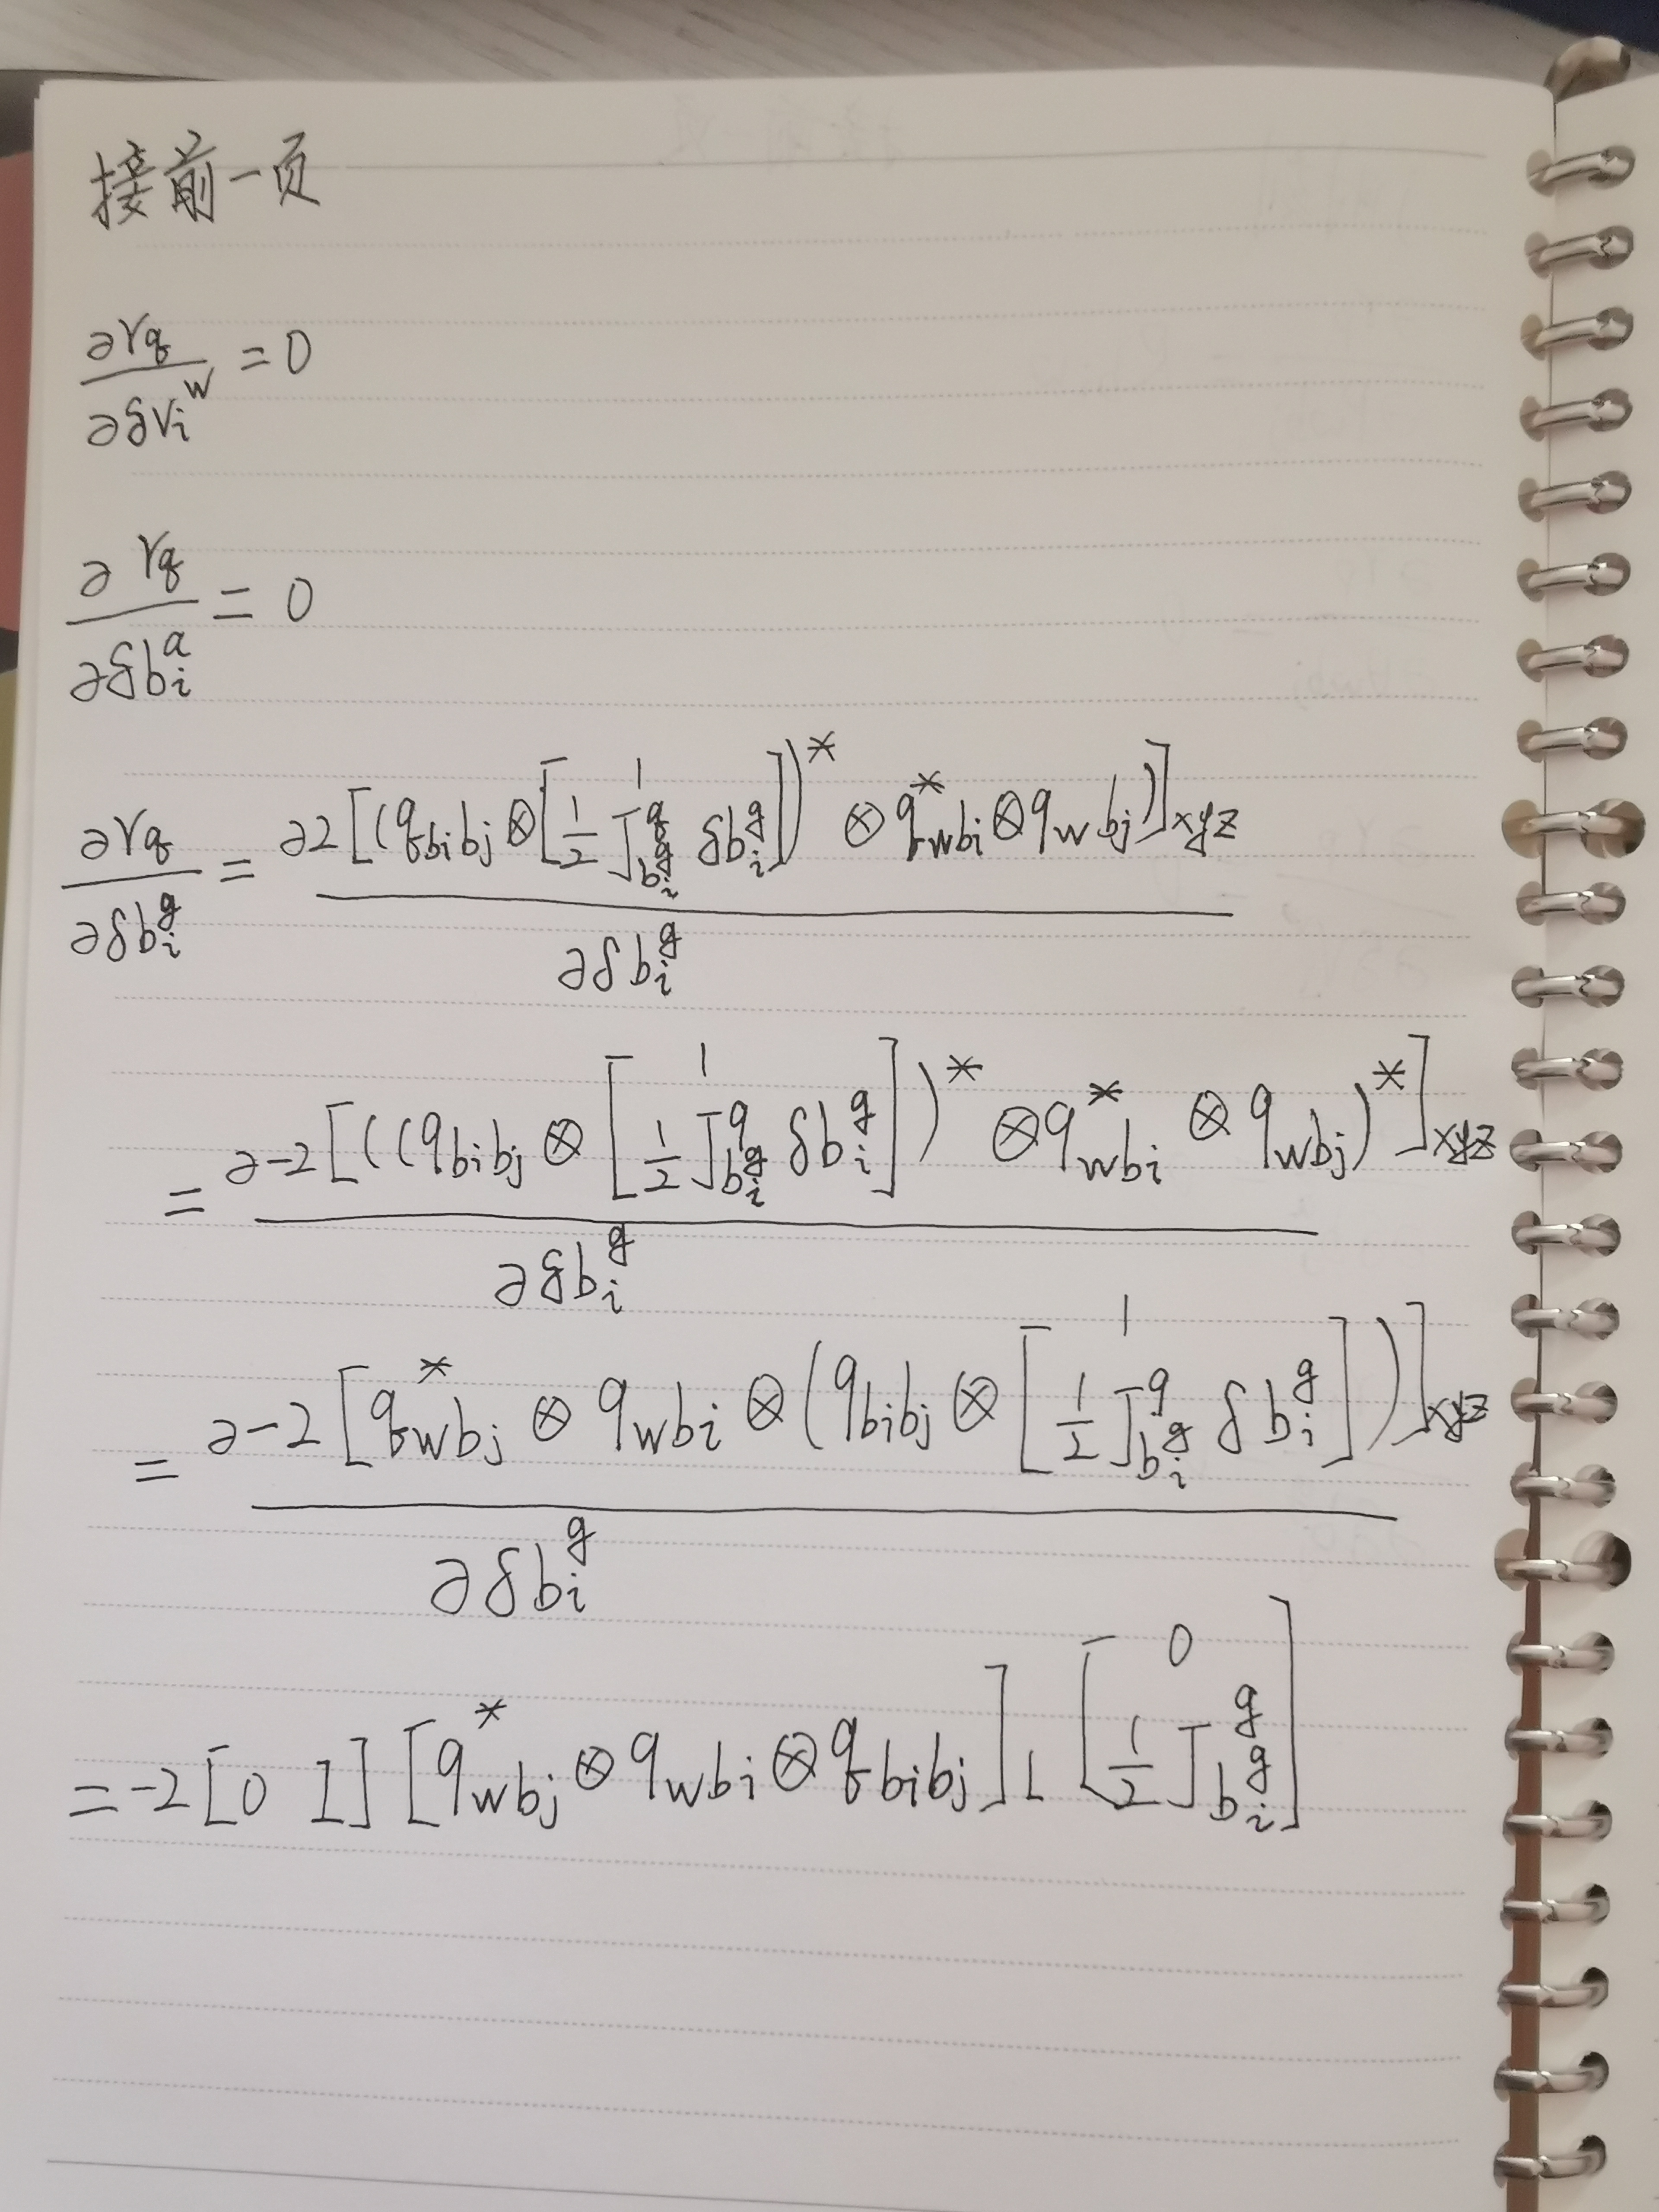 接前一页
∂r_q / ∂δv_i^w = 0
∂r_q / ∂δb_i^a = 0
∂r_q / ∂δb_i^g = ∂2[(q_{bibj} ⊗ [1; 1/2 J^q_{b_i^g} δb_i^g])^* ⊗ q^*_{wbi} ⊗ q_{wbj})]_{xyz} / ∂δb_i^g
= ∂-2[(((q_{bibj} ⊗ [1; 1/2 J^q_{b_i^g} δb_i^g])^* ⊗ q^*_{wbi} ⊗ q_{wbj})^*]_{xyz} / ∂δb_i^g
= ∂-2[q^*_{wbj} ⊗ q_{wbi} ⊗ (q_{bibj} ⊗ [1; 1/2 J^q_{b_i^g} δb_i^g])]_{xyz} / ∂δb_i^g
= -2[0 I][q^*_{wbj} ⊗ q_{wbi} ⊗ q_{bibj}]_L [0; 1/2 J^g_{b_i^g}]